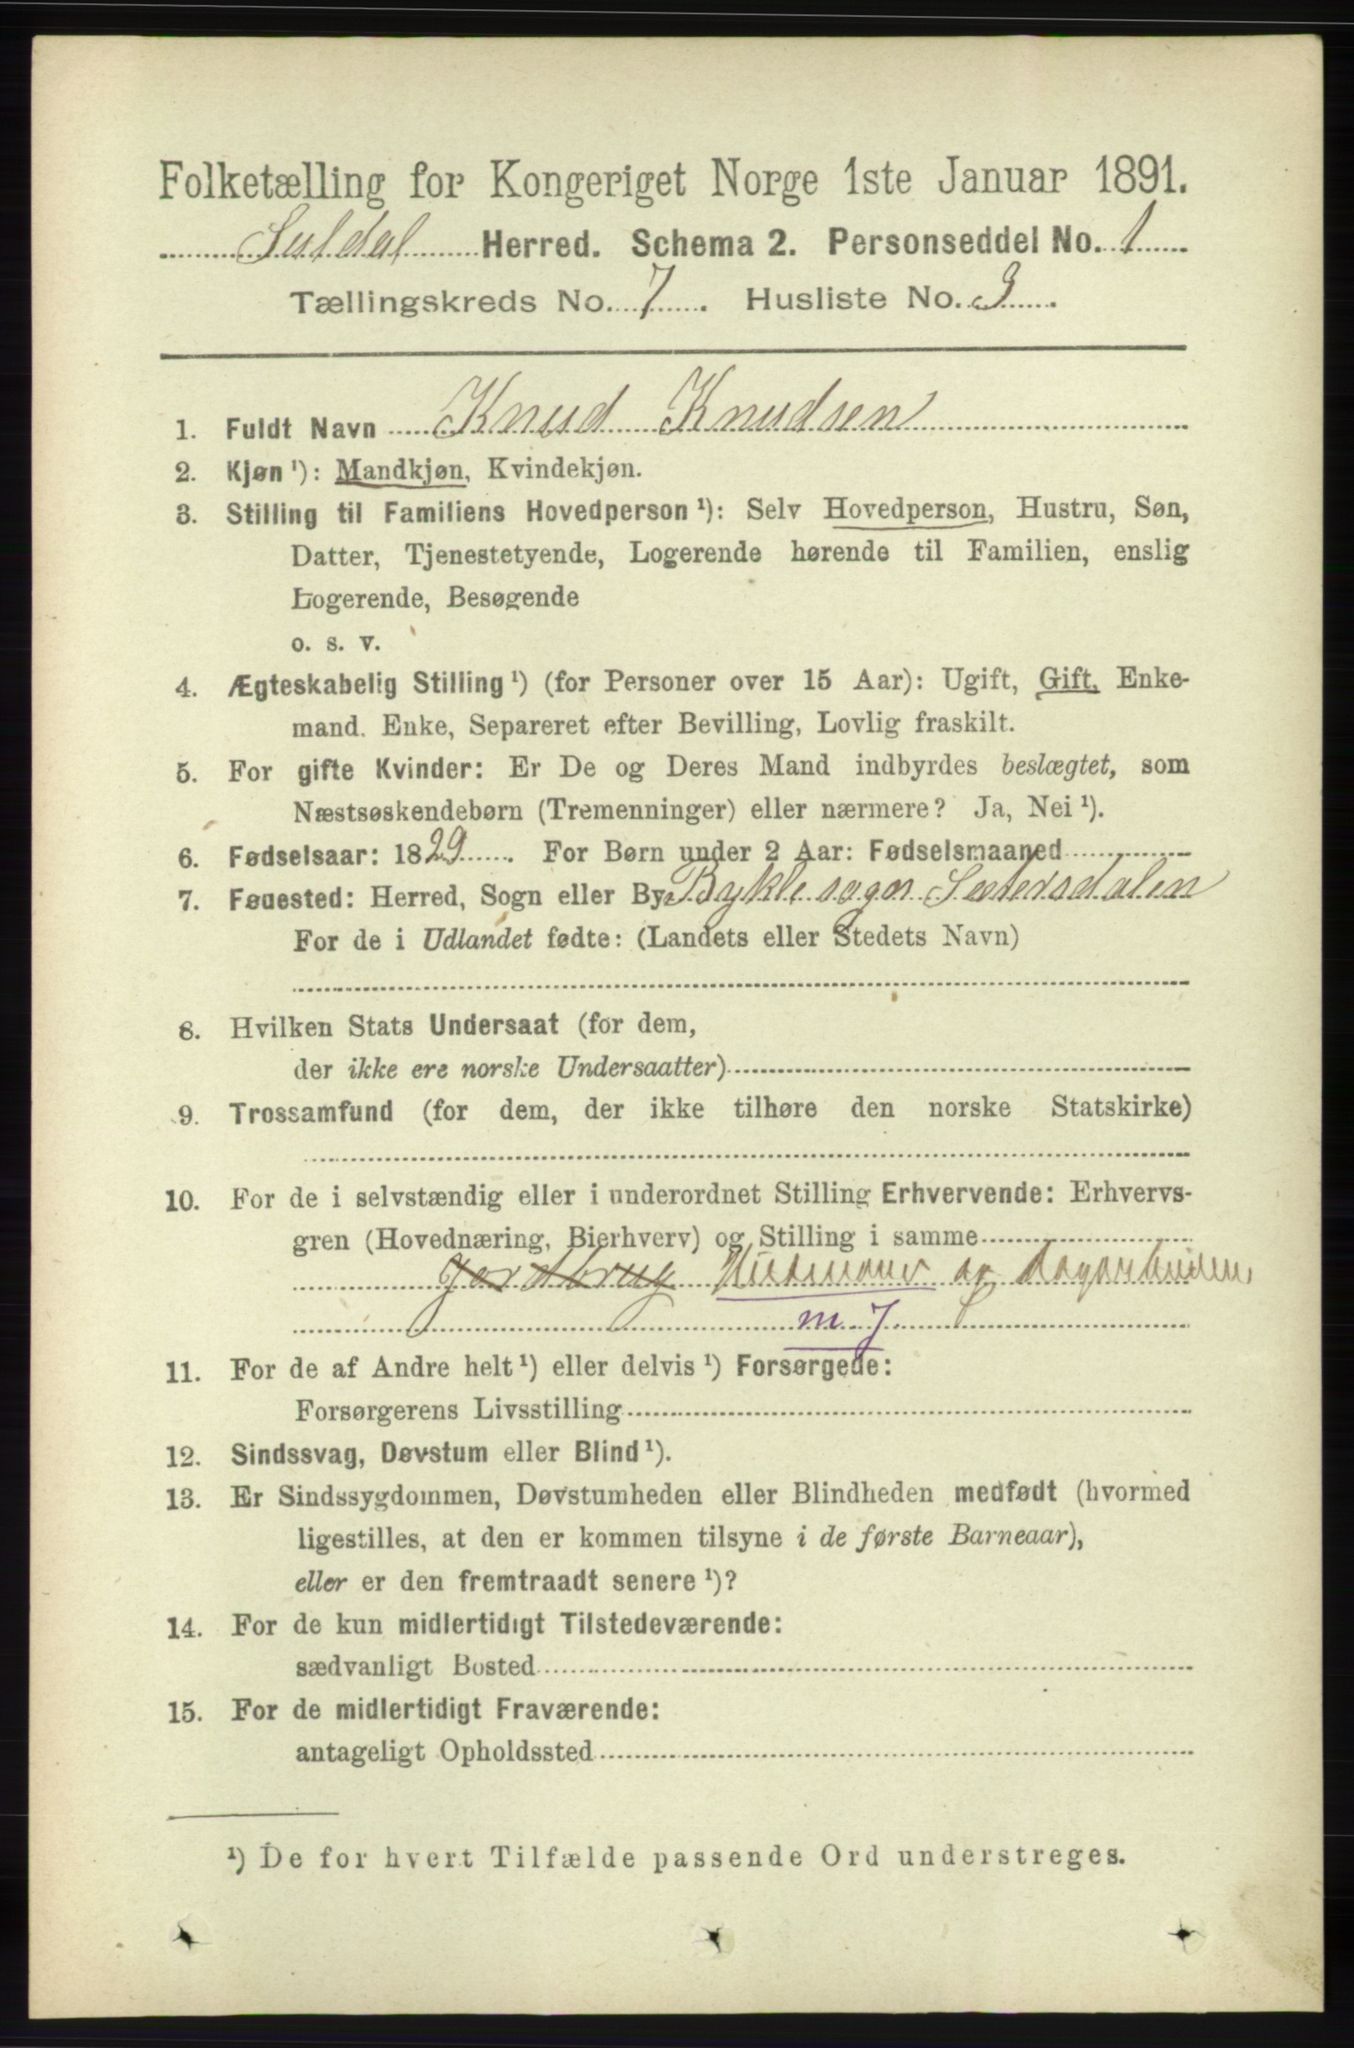 Folketælling for Kongeriget Norge 1ste Januar 1891.
Suldal Herred. Schema 2. Personseddel No. 1
Tællingskreds No. 7. Husliste No. 3.
1. Fuldt Navn Knud Knudsen
2. Kjøn ¹): Mandkjøn, Kvindekjøn.
3. Stilling til Familiens Hovedperson ¹): Selv Hovedperson, Hustru, Søn,
Datter, Tjenestetyende, Logerende hørende til Familien, enslig
Logerende, Besøgende
o. s. v.
4. Ægteskabelig Stilling ¹) (for Personer over 15 Aar): Ugift, Gift, Enke-
mand. Enke, Separeret efter Bevilling, Lovlig fraskilt.
5. For gifte Kvinder: Er De og Deres Mand indbyrdes beslægtet, som
Næstsøskendebørn (Tremenninger) eller nærmere? Ja, Nei ¹).
6. Fødselsaar: 1829. For Børn under 2 Aar: Fødselsmaaned
7. Føuested: Herred, Sogn eller By Bykle sogn Sætersdalen
For de i Udlandet fødte: (Landets eller Stedets Navn)
8. Hvilken Stats Undersaat (for dem,
der ikke ere norske Undersaatter)
9. Trossamfund (for dem, der ikke tilhøre den norske Statskirke)
10. For de i selvstændig eller i underordnet Stilling Erhvervende: Erhvervs-
gren (Hovednæring, Bierhverv) og Stilling i samme
Jordbrug Husmand og Dagarbeider,
m. j.
11. For de af Andre helt ¹) eller delvis ¹) Forsørgede:
Forsørgerens Livsstilling
12. Sindssvag, Døvstum eller Blind ¹).
13. Er Sindssygdommen, Døvstumheden eller Blindheden medfødt (hvormed
ligestilles, at den er kommen tilsyne i de første Barneaar),
eller er den fremtraadt senere ¹)?
14. For de kun midlertidigt Tilstedeværende:
sædvanligt Bosted
15. For de midlertidigt Fraværende:
antageligt Opholdssted
¹) De for hvert Tilfælde passende Ord understreges.